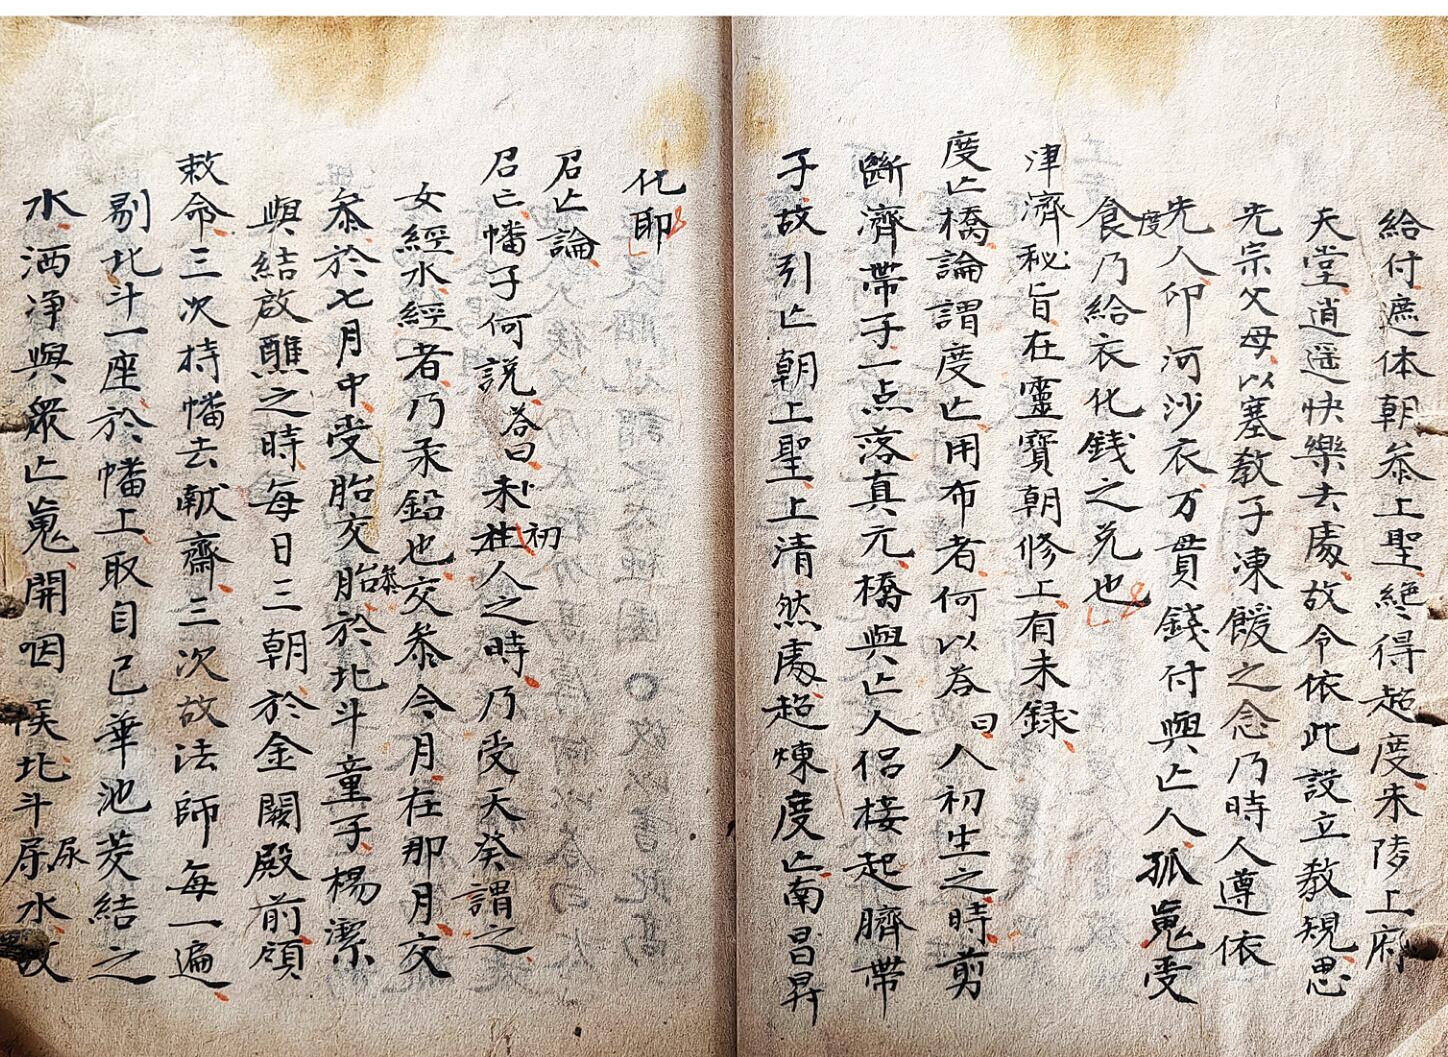 給付遮体朝叅上聖絶得超度朱陵上府
天堂逍遥快樂去處故令依此設立教規思
先宗父母以塞教子凍餒之念乃時人遵依
先人卬河沙衣万貫錢付與亡人孤嵬受
度
食乃給衣化錢之兑也
津濟秘旨在靈寶朝修上有未録
度亡橋論謂度亡用布者何以答曰人初生之時剪
斷濟帶子一点落真元橋與亡人侣接起臍帶
子故引亡朝上聖上清然處超煉度亡南昌昇
化
召亡論
召亡幡子何説答曰未性人之時乃受天癸謂之
初
女經水經者乃汞鉛也交叅今月在那月交
叅於七月中受胎交胎於北斗童子楊潔
叅
與結啟醮之時每日三朝於金闕殿前領
敕命三次持幡去献齋三次故法師每一遍
剔北斗一座於幡上取自已華池炁結之
水洒净與衆亡嵬開咽候北斗屏水故
尿